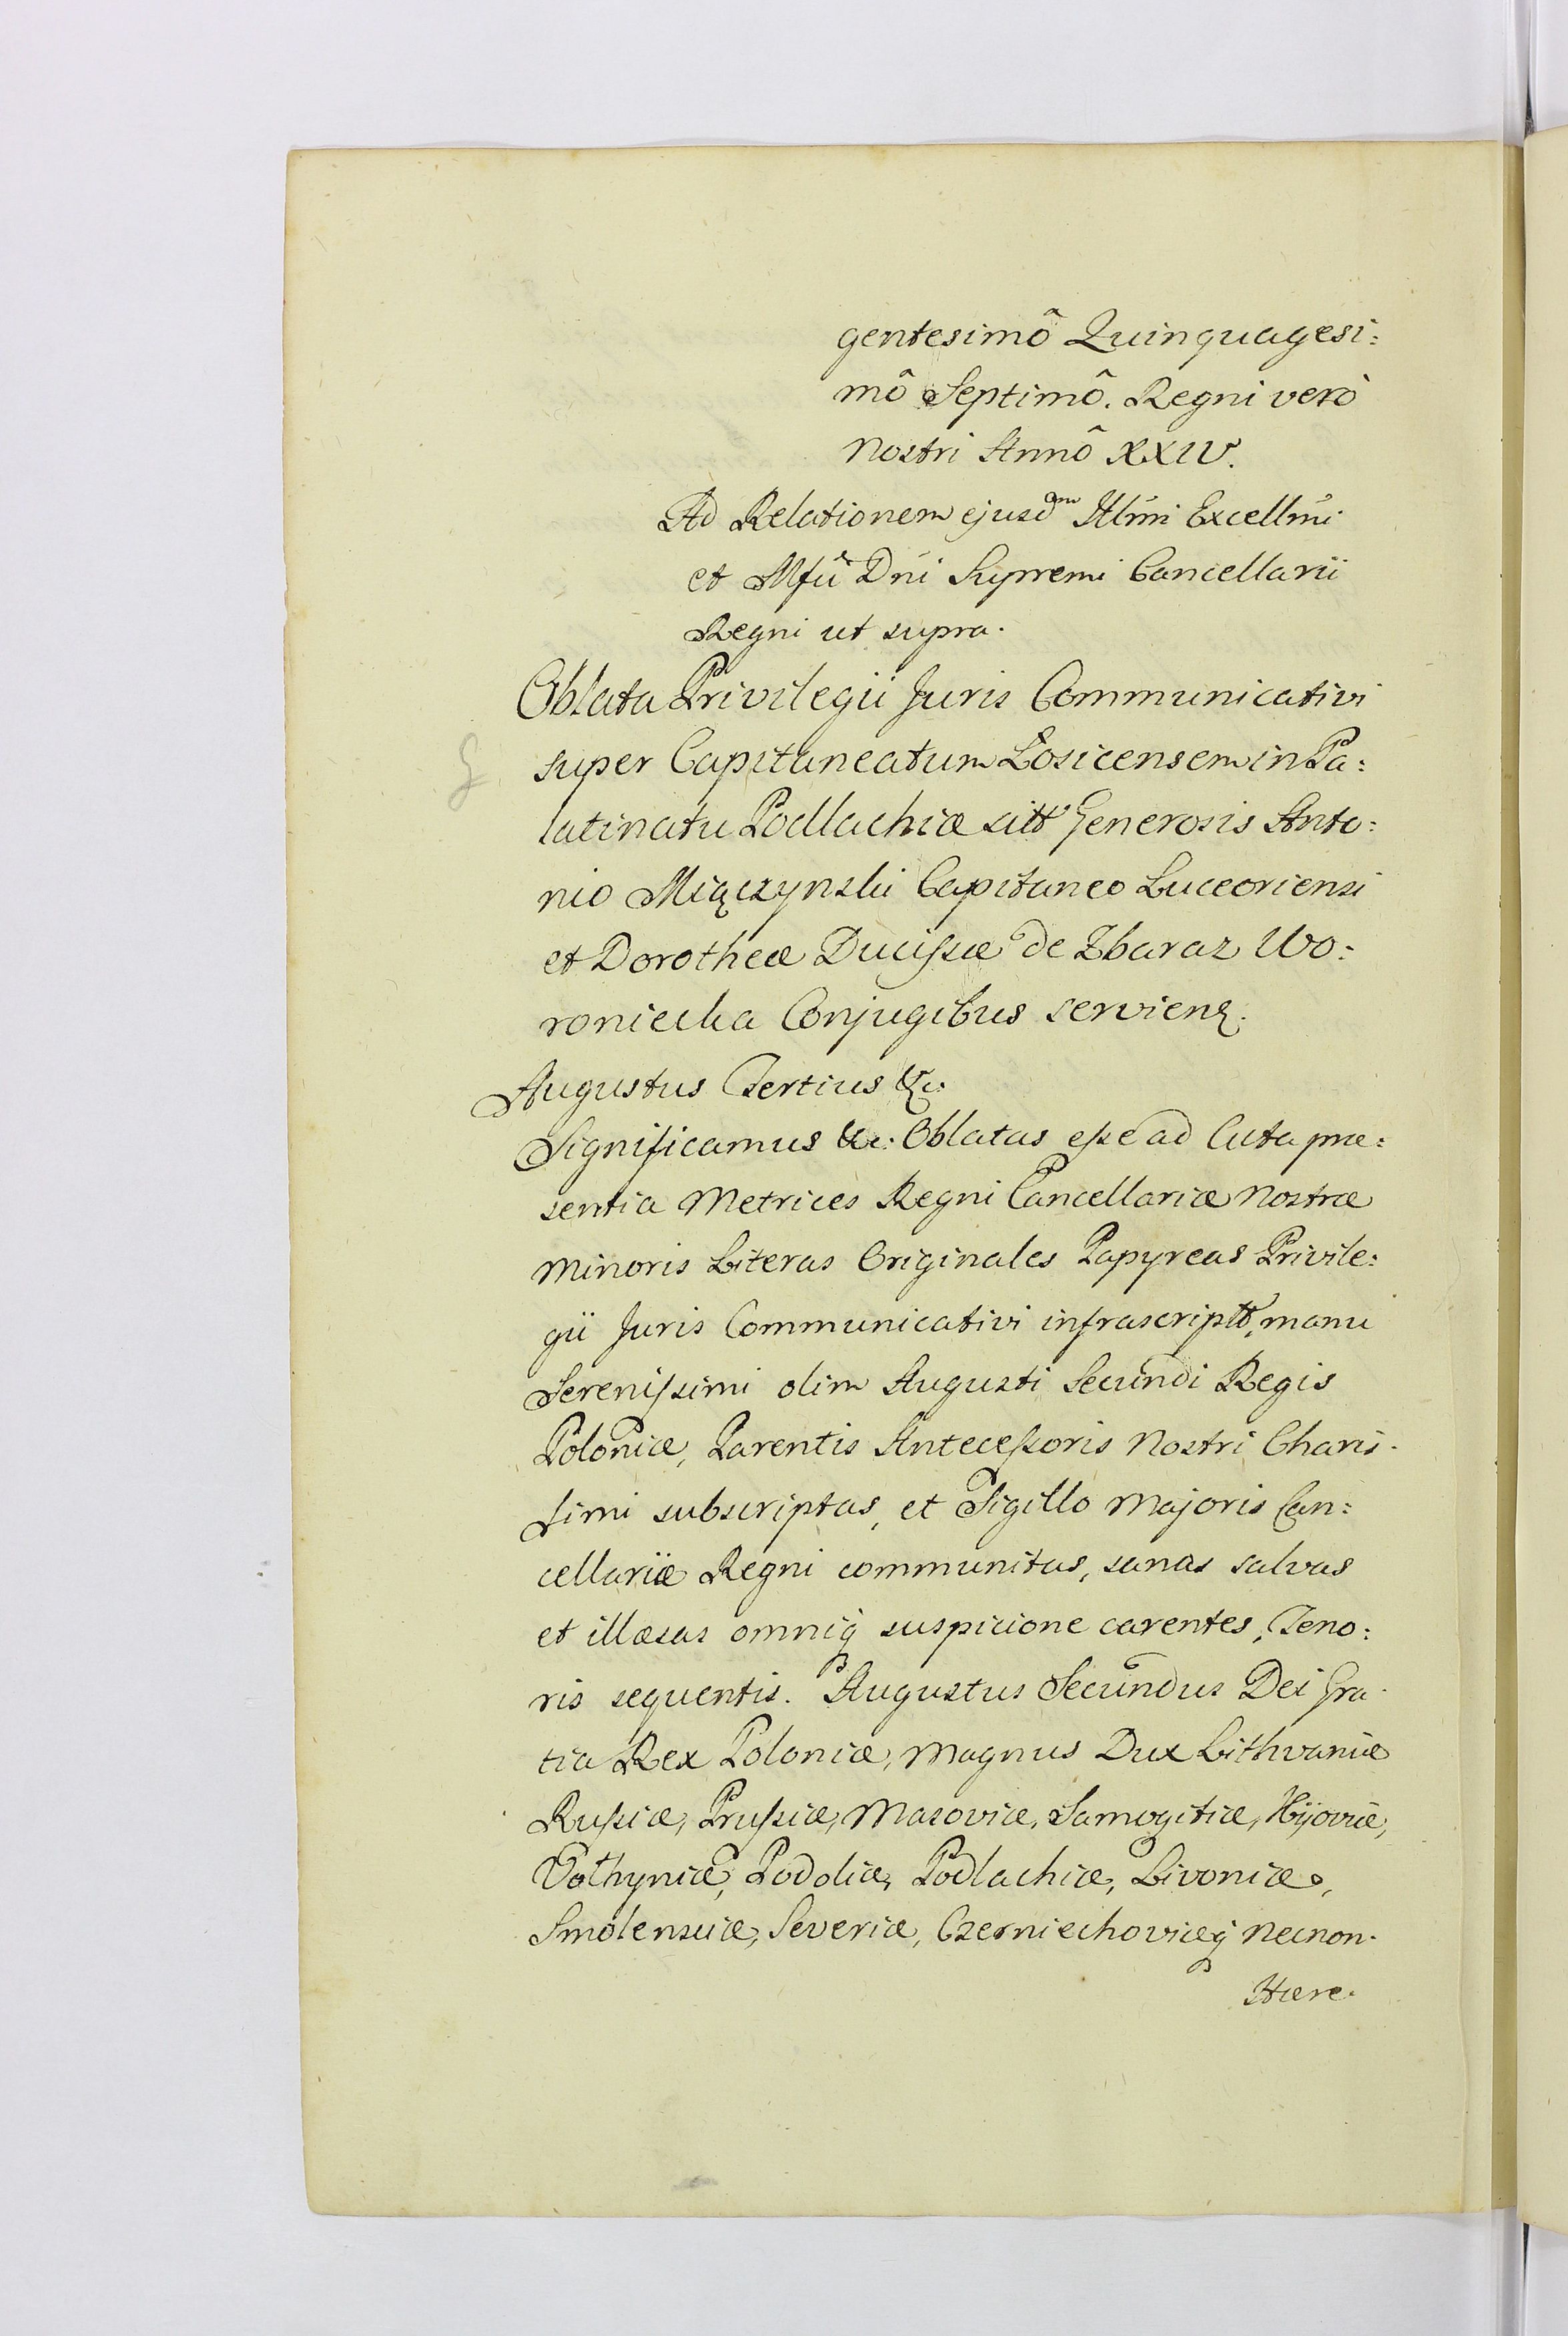 gentesimô Quinquagesi:
mô Septimô. Regni verò
Nostri Annô XXIV.
Ad Relationem ejusdm Illmi Excellmi
et Mfci Dni Supremi Cancellarii
Regni ut supra.
Oblata Privilegii Juris Communicativi
super Capitaneatum Łosicensem in Pa:
latinatu Podlachiæ sitt Generosis Anto:
nio Miączynski Capitaneo Luceoriensi
et Dorotheæ Ducissæ de Zbaraz Wo:
roniecka Conjugibus servien.
Augustus Tertius &c.
Significamus &c. Oblatas esse ad Acta præ:
sentia Metrices Regni Cancellariæ Nostræ
Minoris Literas Originales Papyreas Privile:
gii Juris Communicativi infrascriptt, manu
Serenissimi olim Augusti Secundi Regis
Poloniæ, Parentis Antecessoris Nostri Charis.
simi subscriptas, et Sigillo Majoris Can:
cellariæ Regni communitas, sanas salvas
et illæsas omniq suspicione carentes, Teno:
ris sequentis. Augustus Secundus Dei Gra.
tia Rex Poloniæ, Magnus Dux Lithvaniæ
Russiæ, Prussiæ, Masoviæ, Samogitiæ, Kijoviæ,
Volhyniæ, Podoliæ, Podlachiæ, Livoniæ,
Smolensciæ, Severiæ, Czerniechoviæq Necnon.
Hære.